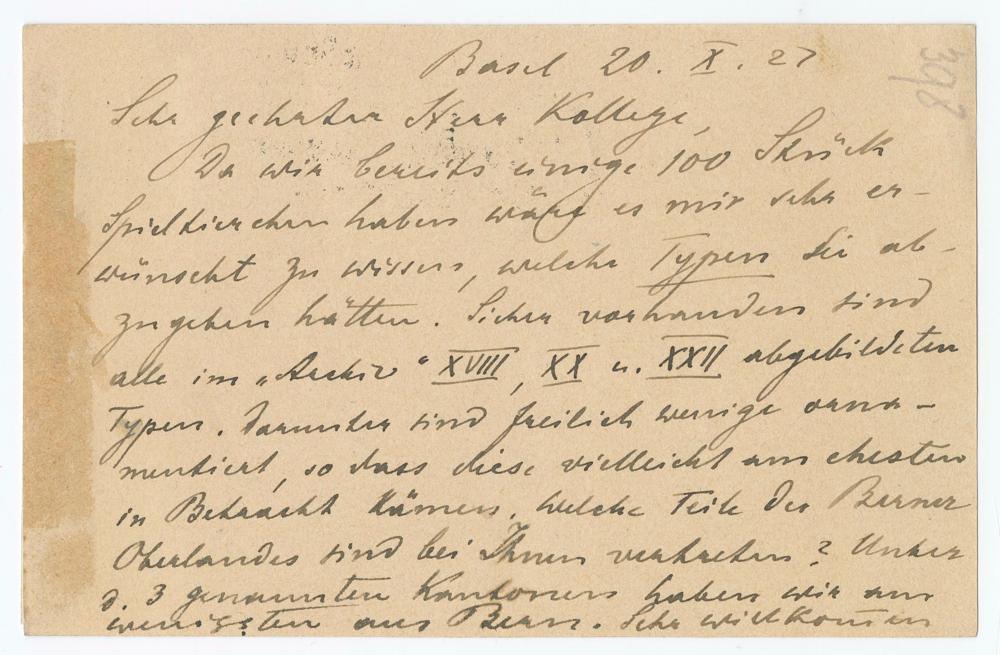 398
Basel 20. X. 27
Sehr geehrter Herr Kollege,
Da wir bereits einige 100 Stück
Spieltierchen haben wäre es mir sehr er-
wünscht zu wissen, welche Typen Sie ab-
zugeben hätten. Sicher vorhanden sind
alle im „Archiv“ XVIII, XX u. XXII abgebildeten
Typen. Darunter sind freilich wenige orna-
mentiert, so dass diese vielleicht am ehesten
in Betracht kämen. Welche Teile des Berner
Oberlandes sind bei Ihnen vertreten? Unter
d. 3 genannten Kantonen haben wir am
wenigsten aus Bern. Sehr willkom̅en